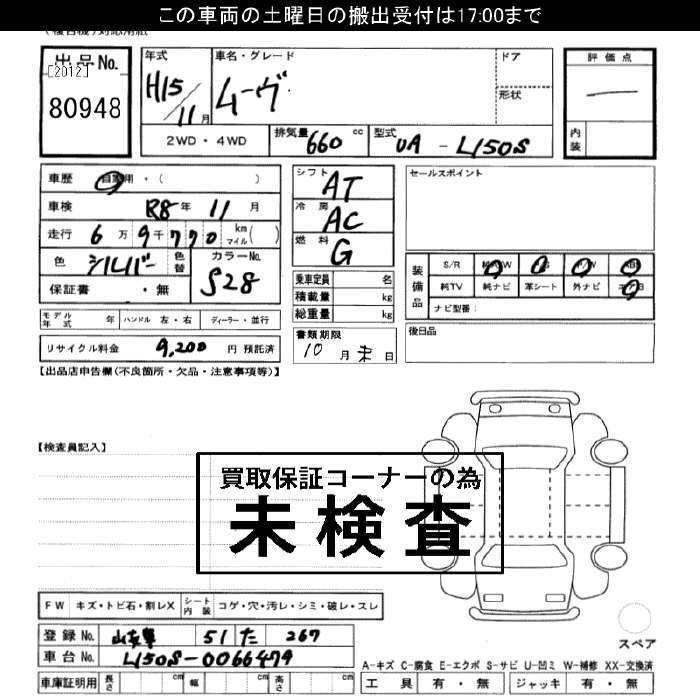 この車両の土曜日の搬出受付は17:00まで
出品No.
[2012]
80948
年式
H15/11月
車名・グレード
ムーヴ
ドア
形状
評価点
内装
2WD・4WD
排気量 660 cc
型式 UA - L150S
車歴 自家用・( )
車検 R8年 11月
走行 6万 9千 7 7 0 km マイル( )
色 シルバー
色替
カラーNo. S28
保証書 ・無
シフト AT
冷房 AC
燃料 G
乗車定員 名
積載量 kg
総重量 kg
セールスポイント
装備品
S/R 純AW PS PW ABS
純TV 純ナビ 革シート 外ナビ エアB
ナビ型番:
モデル年式 年
ハンドル 左・右
ディーラー・並行
書類期限
10月末日
後日品
リサイクル料金 9,200 円 預託済
【出品店申告欄(不良箇所・欠品・注意事項等)】
【検査員記入】
買取保証コーナーの為
未検査
FW キズ・トビ石・割レX
シート内装 コゲ・穴・汚レ・シミ・破レ・スレ
登録No. 51 た 267
車台No. L150S-0066479
スペア
A-キズ C-腐食 E-エクボ S-サビ U-凹ミ W-補修 XX-交換済
車庫証明用 長さ cm 幅 cm 高さ cm
工具 有・無 ジャッキ 有・無